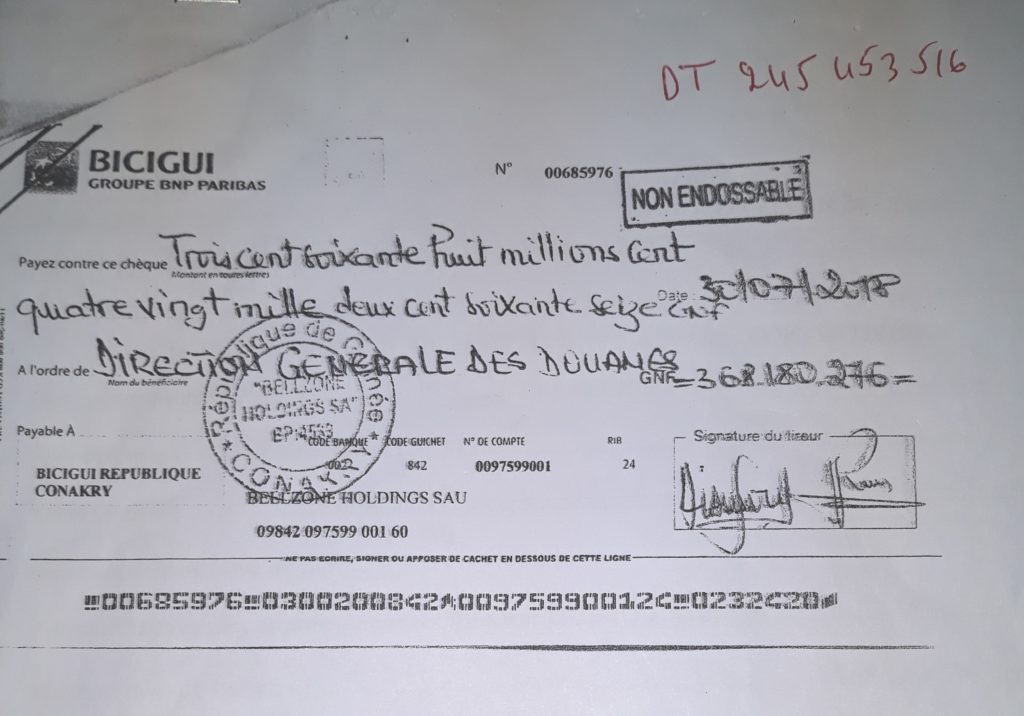 DT 245 453 516
BICIGUI
GROUPE BNP PARIBAS
N° 00685976
NON ENDOSSABLE
Payez contre ce chèque Trois cent soixante huit millions cent
Montant en toutes lettres
quatre vingt mille deux cent soixante seize GNF
Date 30/07/2018
A l'ordre de DIRECTION GENERALE DES DOUANES
Nom du bénéficiaire
GNF =368.180.276=
République de Guinée
"BELLZONE
HOLDINGS SA"
BP:4539
* CONAKRY *
Payable À
CODE BANQUE CODE GUICHET N° DE COMPTE RIB
002 842 0097599001 24
Signature du tireur
BICIGUI REPUBLIQUE
CONAKRY
BELLZONE HOLDINGS SAU
09842 097599 001 60
NE PAS ECRIRE, SIGNER OU APPOSER DE CACHET EN DESSOUS DE CETTE LIGNE
00685976 0300200842 009759900124 0232420